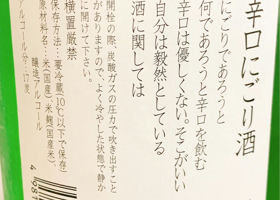 辛口にごり酒
にごりであろうと
何であろうと辛口を飲む
辛口は優しくない。そこがいい
自分は毅然としている
酒に関しては
開栓の際、炭酸ガスの圧力で吹き出すこと
がありますので、よく冷やした状態で静か
に開けて下さい。
横置厳禁
保存方法：要冷蔵(10℃以下で保存)
原材料名：米(国産)米麹(国産米)
醸造アルコール
アルコール分：17度